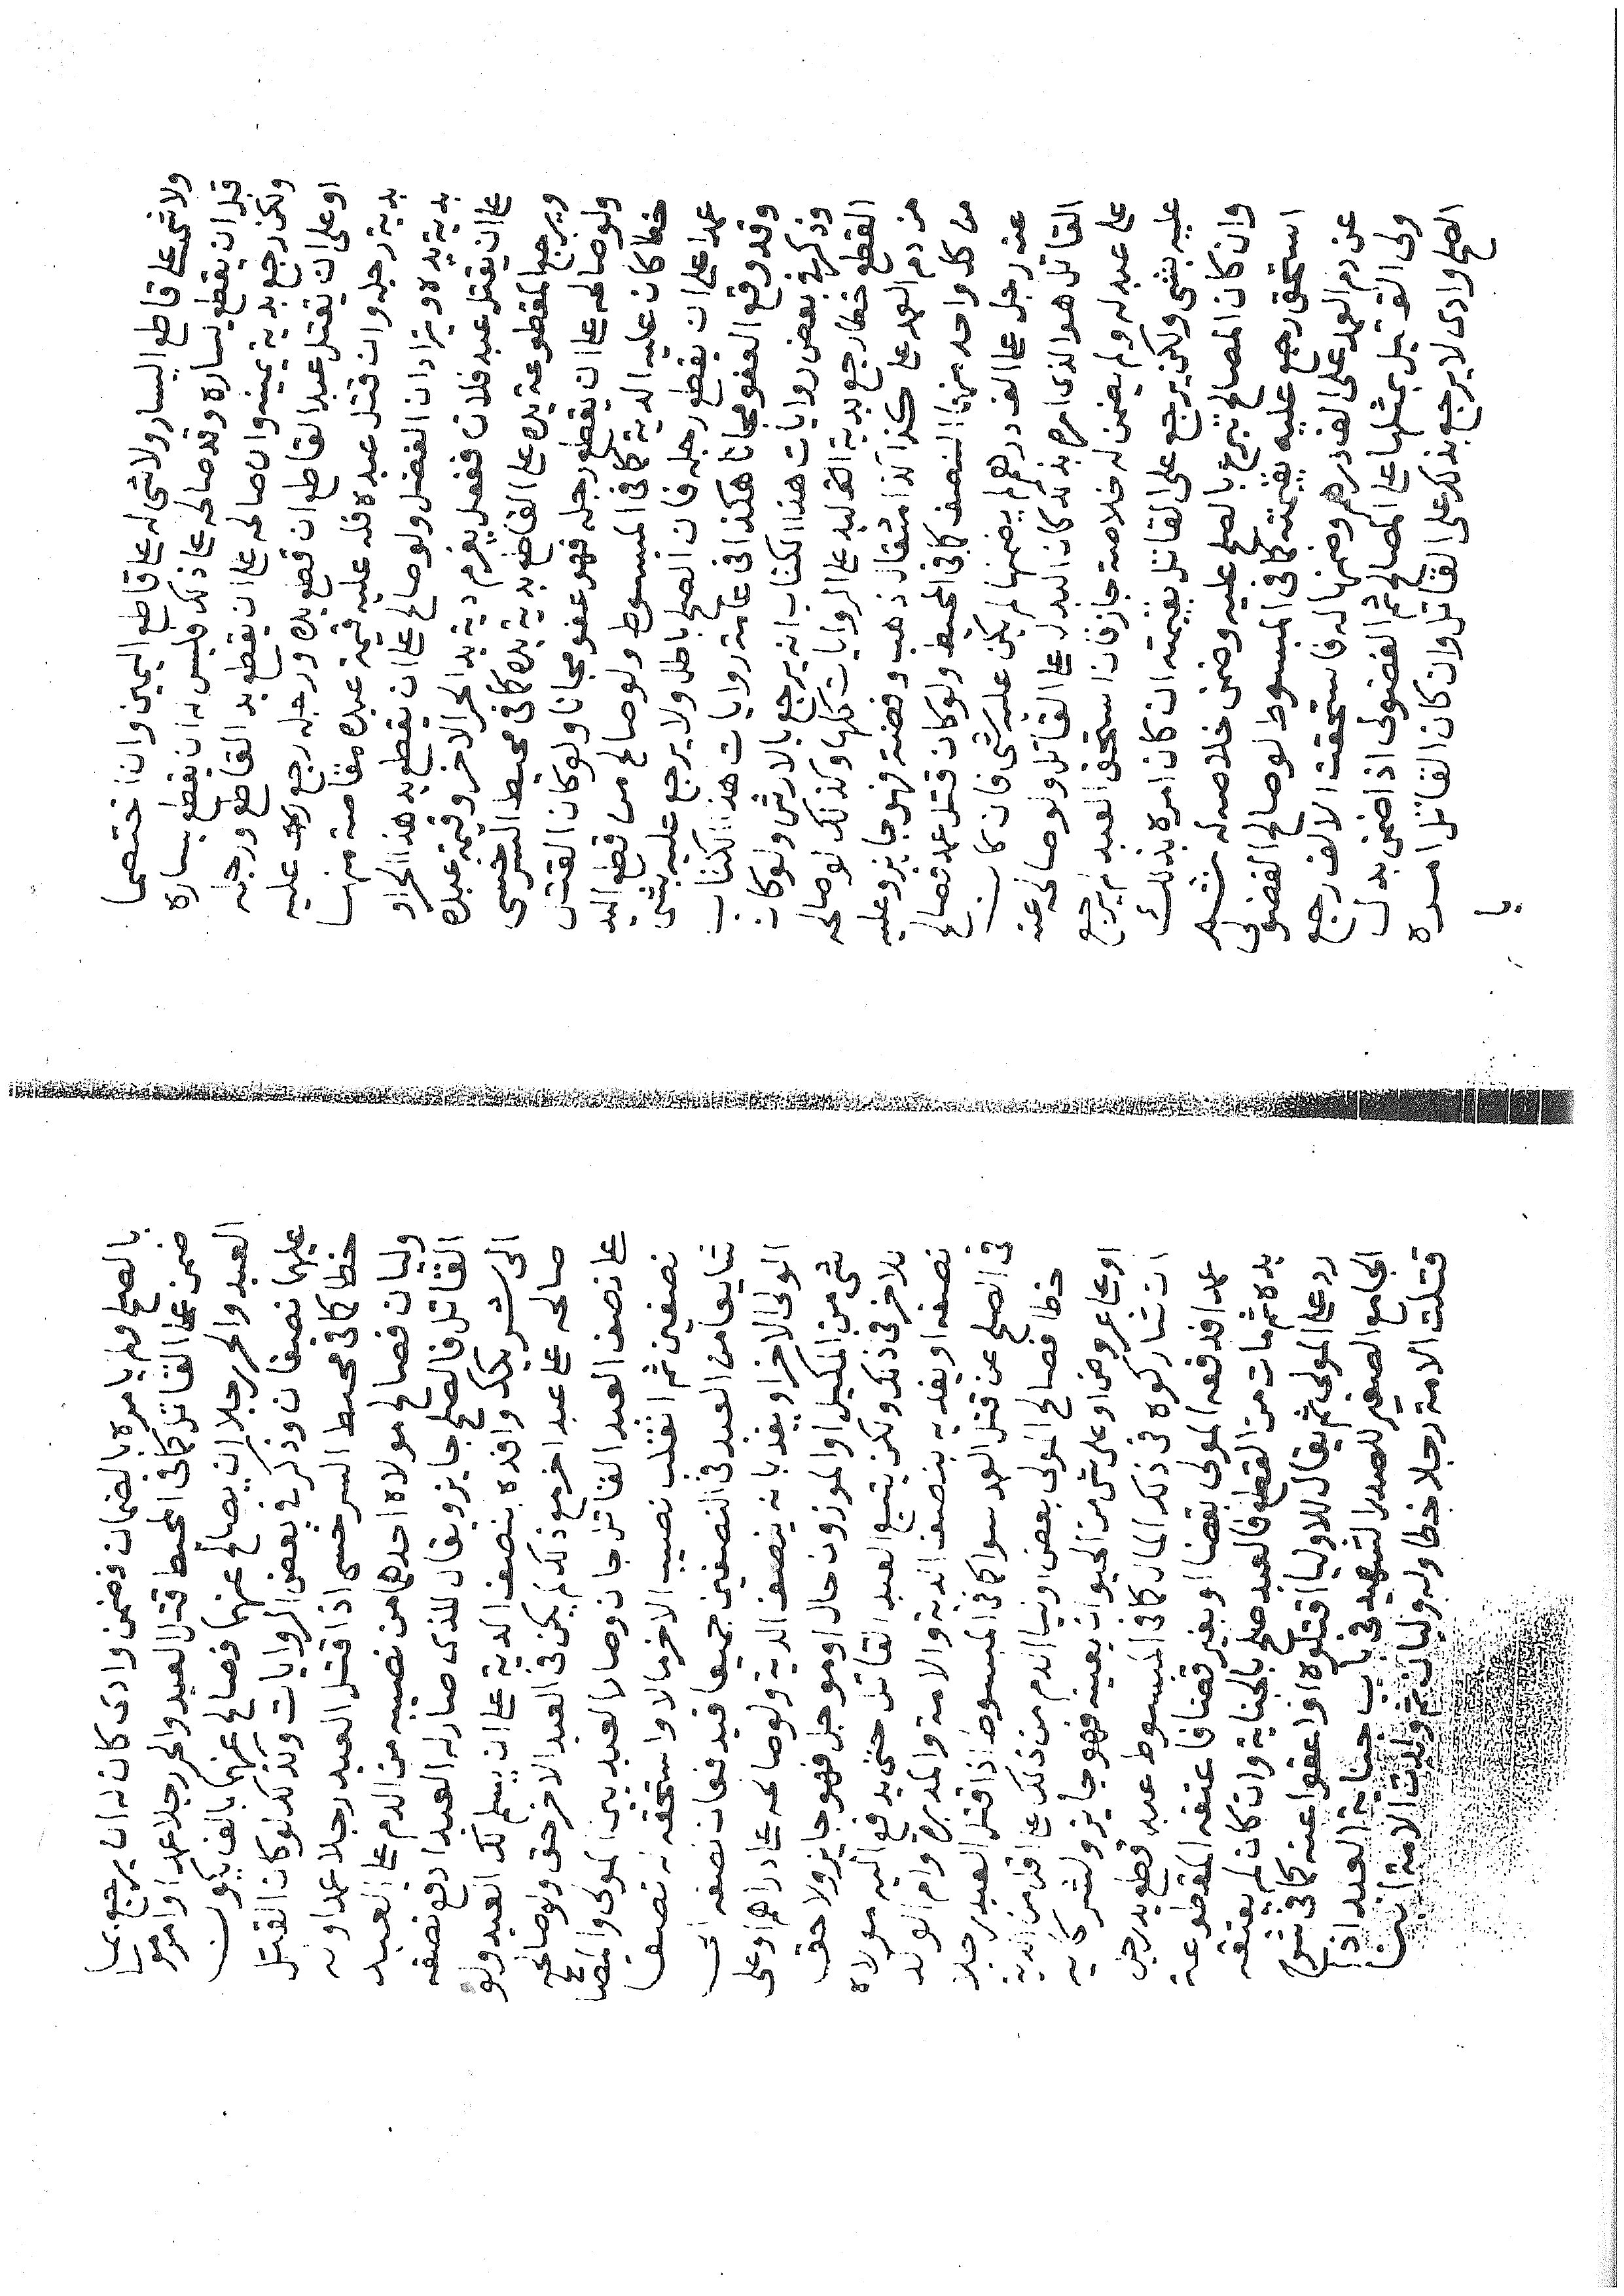 ولا شئ على قاطع اليسار ولا شئ له على قاطع اليمين وان اختصما
قبل ان يقطع يساره وقد صالحه على ذلك فليس له ان يقطع يساره
ولكن رجع بدية يمينه وان صالحه على ان يقطع يد القاطع ورجله
او على ان يقتل عبد القاطع ان قطع يده ورجله رجع عليه
بدية رجله وان قتل عبده فله عليه قيمة عبده مقاصة منها
بدية يده ويترادان الفضل ولو صالح على ان يقطع يد هذا الحر او
على ان يقتل عبد فلان ففعل يغرم دية يد الحر الاخر وقيمة عبده
ويرجع المقطوعة يده على القاطع بدية يده كافى محيط السرخسى
ولو صالحه على ان يقطع رجله فهو عفو مجانا ولو كان القتل
خطا كان عليه الدية كافى المبسوط ولو صالح من قطع اليد
عمدا على ان يقطع رجله فان الصلح باطل ولا يرجع عليه بشى
وقد وقع العفو مجانا هكذا فى عامة روايات هذا الكتاب
وذكر فى بعض روايات هذا الكتاب انه يرجع بالارش ولو كان
القطع خطا رجع بدية اليد على الروايات كلها وكذلك لو صالحه
من دم العمد على كذا كذا مثقال ذهب وفضة فهو جايز وعليه
من كل واحد منهما النصف كافى المحيط ولو كان قتل عمد فصالح
عنه رجل على الف درهم لم يضمنها لم يكن عليه شى فان كان
القاتل هو الذى امره بذلك كان البدل على القاتل ولو صالحه عنه
على عبد له ولم يضمن له خلاصه جاز فان استحق العبد لم يرجع
عليه بشى ولكن يرجع على القاتل بقيمته ان كان امره بذلك
وان كان المصالح تبرع بالصلح عليه وضمن خلاصه له ثم
استحق رجع عليه بقيمته كافى المبسوط لو صالح الفضولى
عن دم العمد على الف درهم وضمنها له فاستحقت الالف رجع
ولى القتيل بمثلها على المصالح ثم الفضولى اذا ضمن بدل
الصلح وادى لا يرجع بذلك على القاتل وان كان القاتل امره
با
بالصلح ولم يامره بالضمان فضمن وادى كان له ان يرجع بما
ضمن على القاتل كافى المحيط قتل العبد والحر رجلا عمدا وامر مولى
العبد والحر رجلا ان يصالح عنهما فصالح عنهما بالف يكون
عليهما نصفان وذكر فى بعض الروايات وكذلك لو كان القتل
خطا كافى محيط السرخسى اذا قتل العبد رجلا عمدا وله
وليان فصالح مولاه احدهما من نصيبه من الدم على العبد
القاتل فالصلح جايز ويقال للذى صار له العبد ادفع نصفه
الى شريكك او افده بنصف الدية على ان يسلم لك العبد ولو
صالحه على عبد اخر مع ذلك لم يكن فى العبد الاخر حق ولو صالحه
على نصف العبد القاتل جاز وصار العبد بين المولى والمصالح
نصفين ثم انقلب نصيب الاخر مالا واستحقه له نصف
شايعا من العبد فى النصفين جميعا فيدفعان نصفه الى
الولى الاخر او يفديانه بنصف الدية ولو صالحه على دراهم او على
شى من المكيل او الموزون حال او موجل فهو جايز ولا حق
للاخر فى ذلك ولكن يتبع العبد القاتل حتى يدفع اليه مولاه
نصفه او يفديه بنصف الدية والامة والمدبرة وام الولد
فى الصلح عن قتل العمد سوا كافى المبسوط اذا قتل العبد رجلا
خطا فصالح المولى بعض اوليا الدم من ذلك على اقل من الدية
او على عروض او على شى من الحيوان بعينه فهو جايز ولشركايه
ان يشاركوه فى ذلك المال كافى المبسوط عبد قطع يد رجل
عمدا فدفعه المولى بقضا او بغير قضا فاعتقه المقطوعة
يده ثم مات من القطع فالعبد صلح بالجناية وان كان لم يعتقه
رد على المولى ثم يقال للاوليا اقتلوه او اعفوا عنه كافى شرح
الجامع الصغير للصدر الشهيد فى باب جناية العبد اذا
قتلت الامة رجلا خطا وله وليان ثم ولدت الامة ابنا